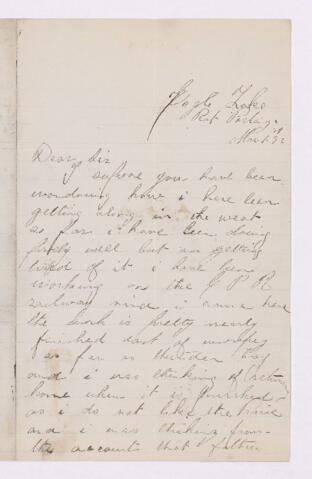 Eagle Lake
Rat Portage
Dear Sir
supose you have been
wondering how i have been
getting along in the west
so far i have been doing
fairly well but am getting
tired of it i have been
working on the C P R
railway since i came here
the work is pretty nearly
finished east of
as far as thunder Bay
and i was thinking of
home when it is finished
as i do not like the
and i was thinking from
the accounts that father